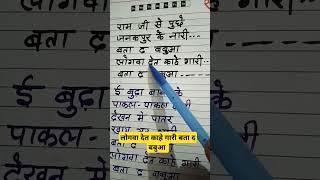 राम जी से पुछे
जनकपुर के नारी...
बता द बबुआ
लोगवा देत काहे गारी..
बता द बबुआ -----
ई बुढ़ा
पाकल-पाकल
देखन में पातर
लोगवा देत काहे गारी बता द
बबुआ
लोगवा देत काहे गारी
बता द बबुआ